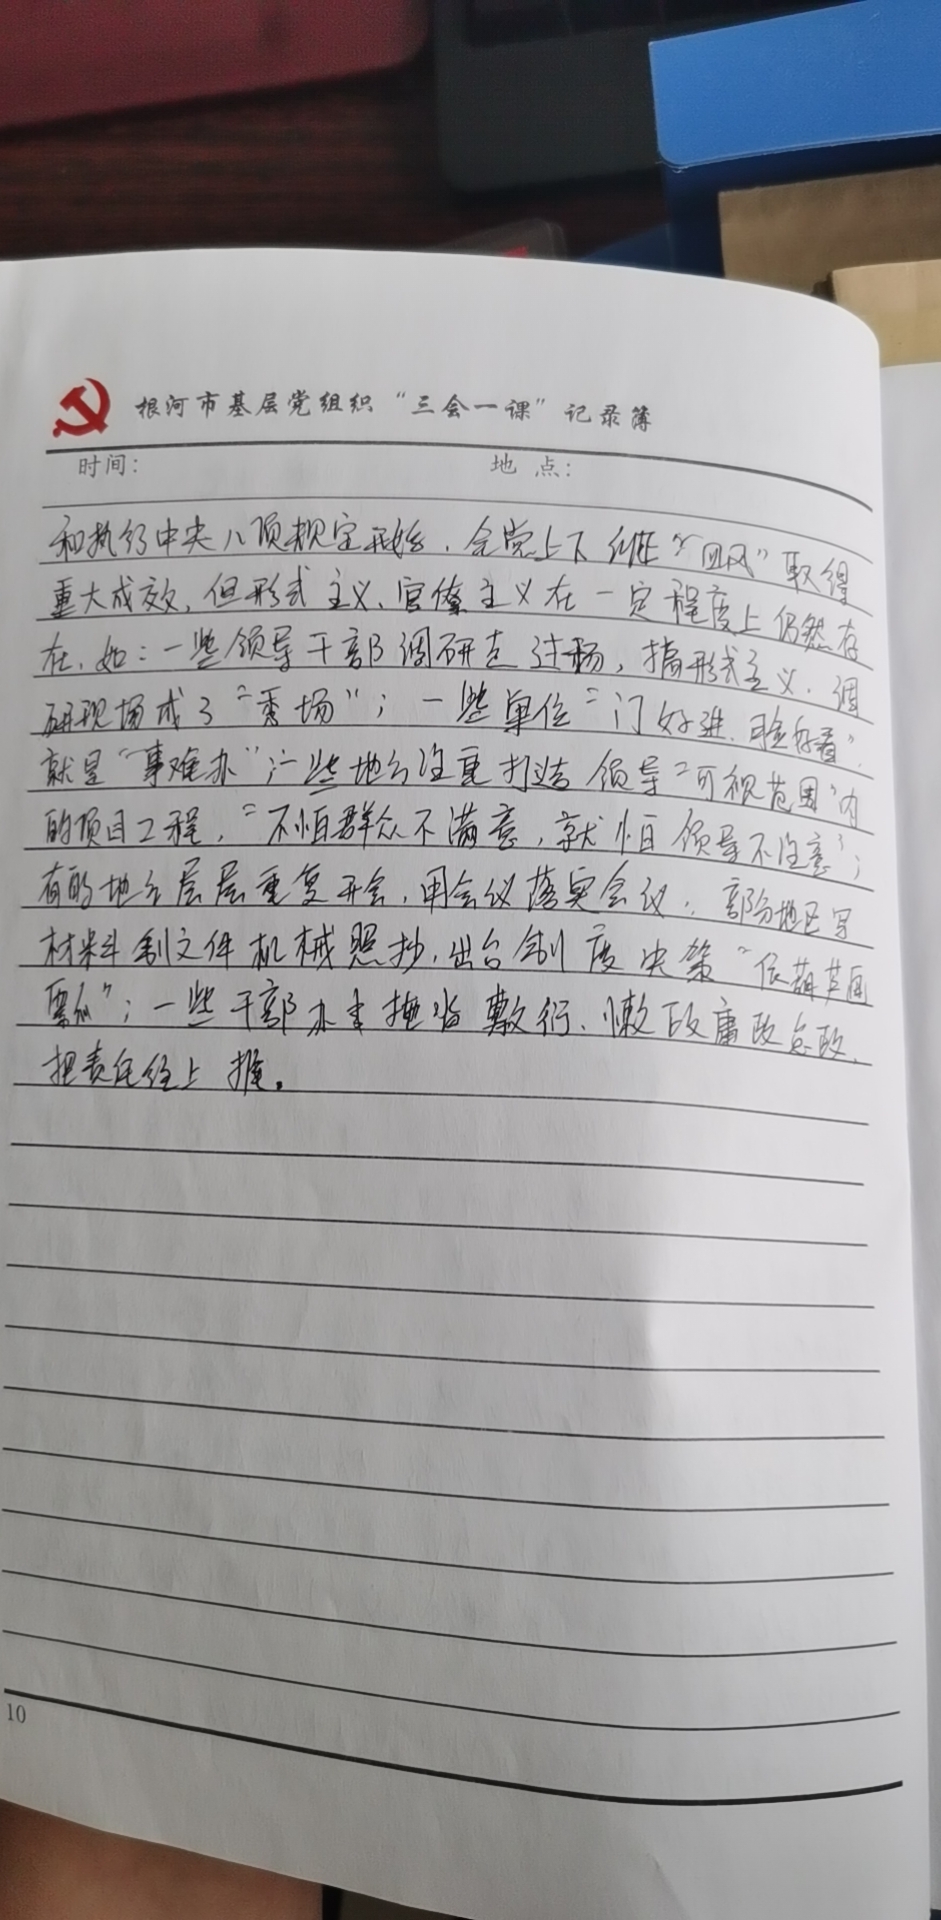 根河市基层党组织“三会一课”记录簿
时间： 地点：
和执行中央八项规定开始，全党上下纠正“四风”取得
重大成效，但形式主义、官僚主义在一定程度上仍然存
在，如：一些领导干部调研走过场，搞形式主义，调
研现场成了“秀场”；一些单位“门好进、脸好看”，
就是“事难办”；一些地方注重打造领导“可视范围”内
的项目工程，“不怕群众不满意，就怕领导不注意”；
有的地方层层重复开会，用会议落实会议；部分地区写
材料制文件机械照抄，出台制度决策“依葫芦画
瓢”；一些干部办事拖沓敷衍、懒政庸政怠政，
把责任往上推。
10